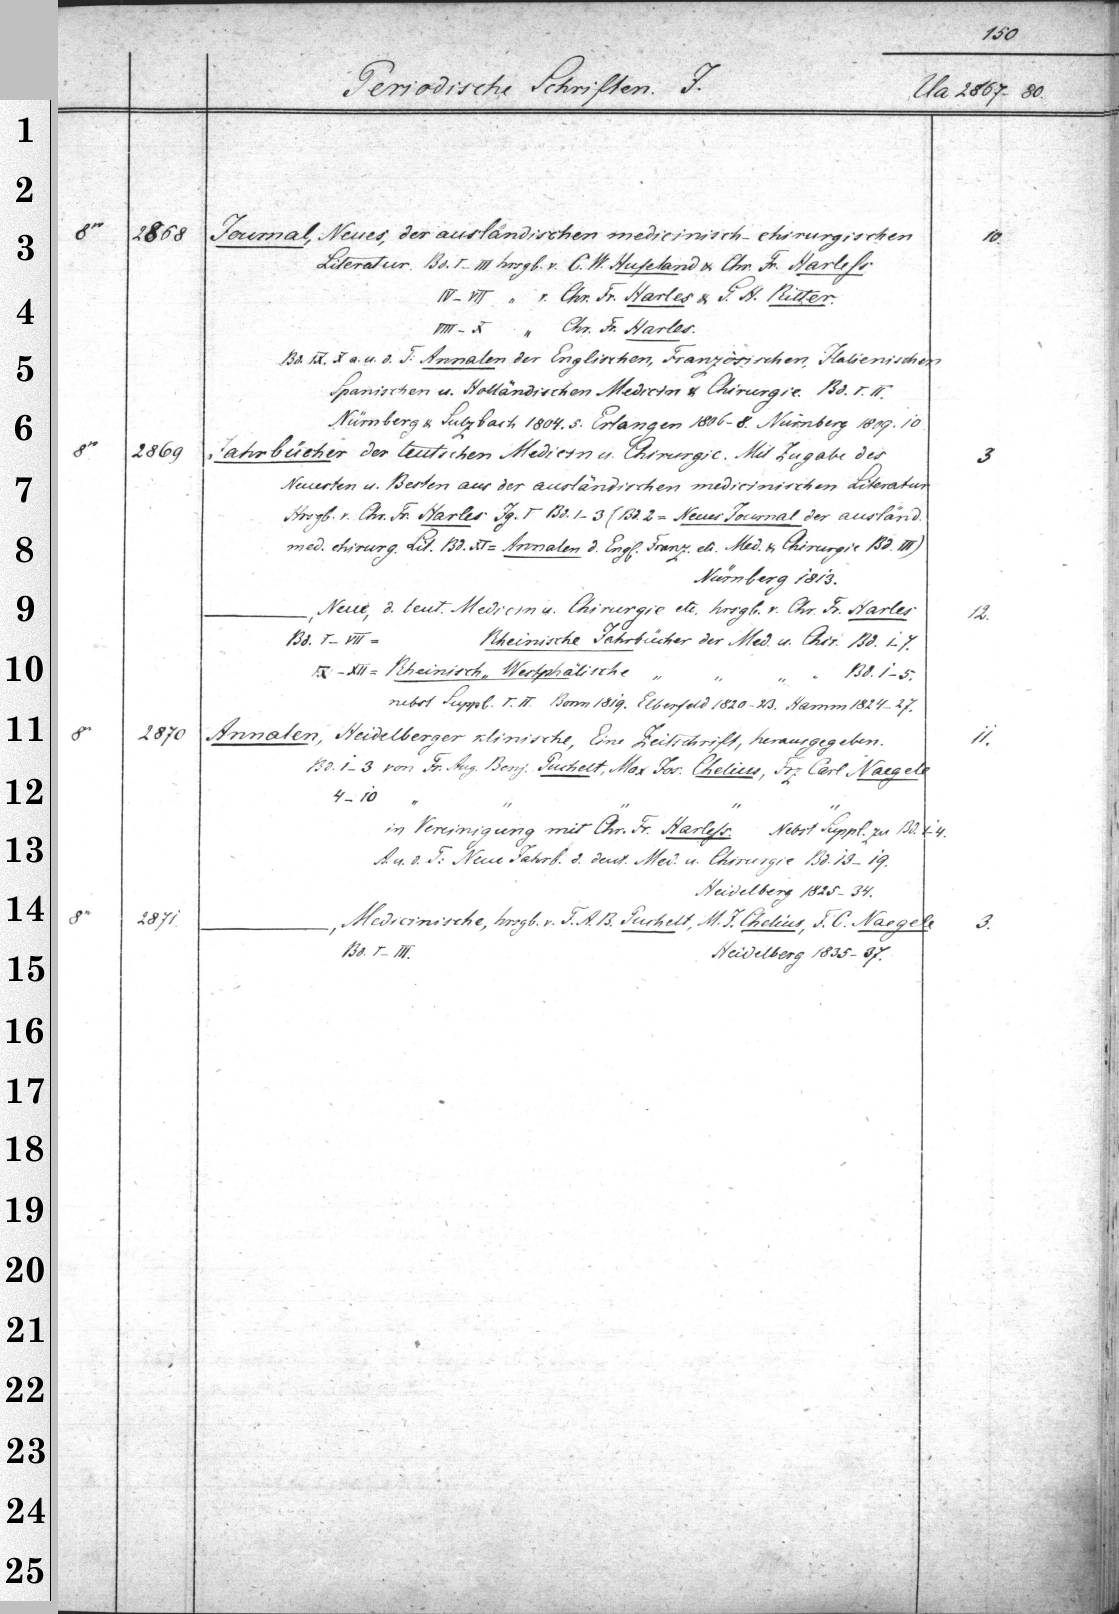 150
Periodische Schriften. J.
Ua 2867-80.
1
2
3
4
5
6
7
8
9
10
11
12
13
14
15
16
17
18
19
20
21
22
23
24
25
8vo 2868 Journal, Neues, der ausländischen medicinisch-chirurgischen 10.
Literatur. Bd. I-III hrsgb. v. C. W. Hufeland & Chr. Fr. Harless
IV-VII " v. Chr. Fr. Harles & G. H. Ritter.
VIII-X " Chr. Fr. Harles.
Bd. IX. X a. u. d. T: Annalen der Englischen, Französischen, Italienischen
Spanischen u. Holländischen Medicin & Chirurgie. Bd. I. II.
Nürnberg & Sulzbach 1804. 5. Erlangen 1806-8. Nürnberg 1809. 10
8vo 2869 Jahrbücher der teutschen Medicin u. Chirurgie. Mit Zugabe des 3
Neuesten u. Besten aus der ausländischen medicinischen Literatur
Hrsgb. v. Chr. Fr. Harles Jg. I Bd. 1-3 (Bd. 2 = Neues Journal der ausländ.
med. chirurg. Lit. Bd. XI = Annalen d. Engl. Franz. etc. Med. & Chirurgie Bd. III)
Nürnberg 1813.
———, Neue, d. teut. Medicin u. Chirurgie etc. hrsgb. v. Chr. Fr. Harles 12.
Bd. I-VII = Rheinische Jahrbücher der Med. u. Chir. Bd. 1-7.
IX-XII = Rheinisch-Westphälische " " " " Bd. 1-5.
nebst Suppl. I. II. Bonn 1819. Elberfeld 1820-23. Hamm 1824-27.
8vo 2870 Annalen, Heidelberger klinische, Eine Zeitschrift, herausgegeben. 11.
Bd. 1-3 von Fr. Aug. Benj. Puchelt, Max Jos. Chelius, Frz Carl Naegele
4-10 " " " " "
in Vereinigung mit Chr. Fr. Harless. Nebst Suppl. zu Bd. 1-4.
A. u. d. T: Neue Jahrb. d. deut. Med. u. Chirurgie Bd. 13-19.
Heidelberg 1825-34.
8vo 2871 ———, Medicinische, hrsgb. v. F. A. B. Puchelt, M. J. Chelius, F. C. Naegele 3.
Bd. I-III. Heidelberg 1835-37.